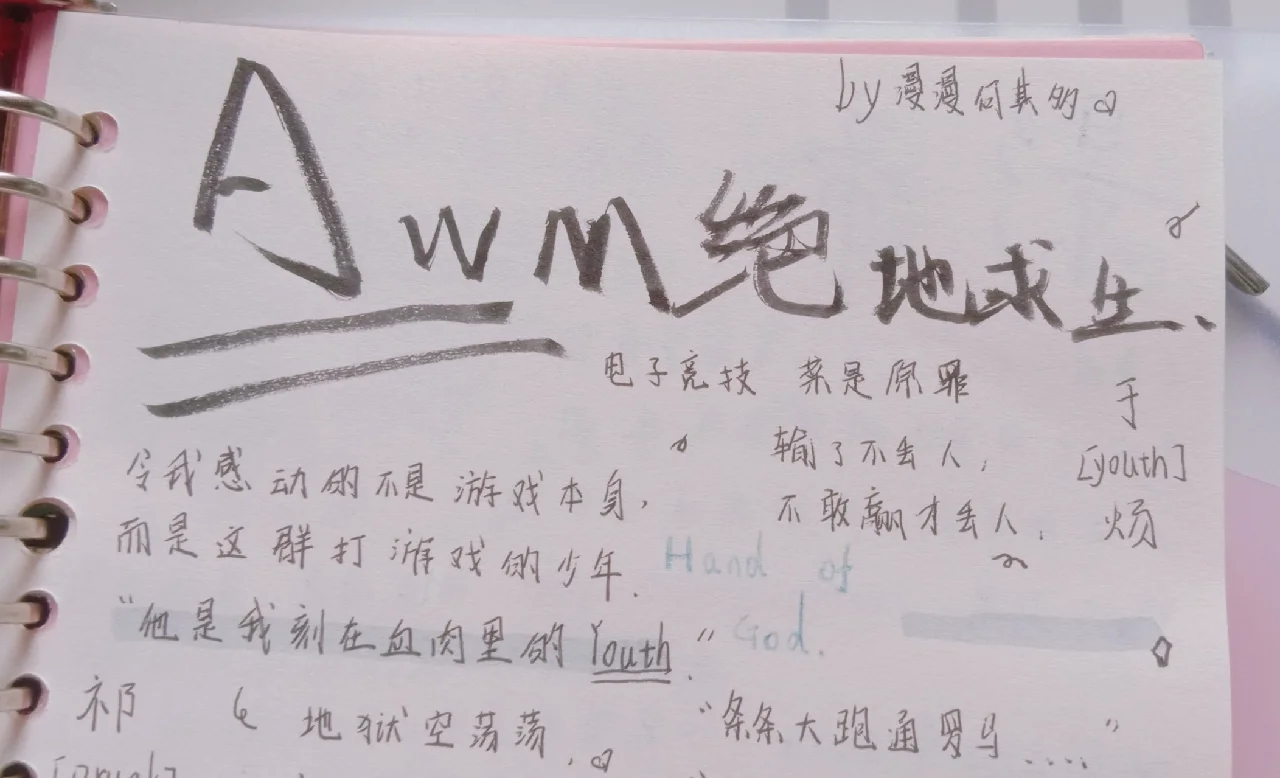 by漫漫何其多
AWM绝地求生
电子竞技 菜是原罪
输了不丢人，
不敢赢才丢人.
于
[youth]
炀
令我感动的不是游戏本身，
而是这群打游戏的少年.
Hand of
God.
"他是我刻在血肉里的Youth."
祁
地狱空荡荡.
"条条大跑通罗马....."